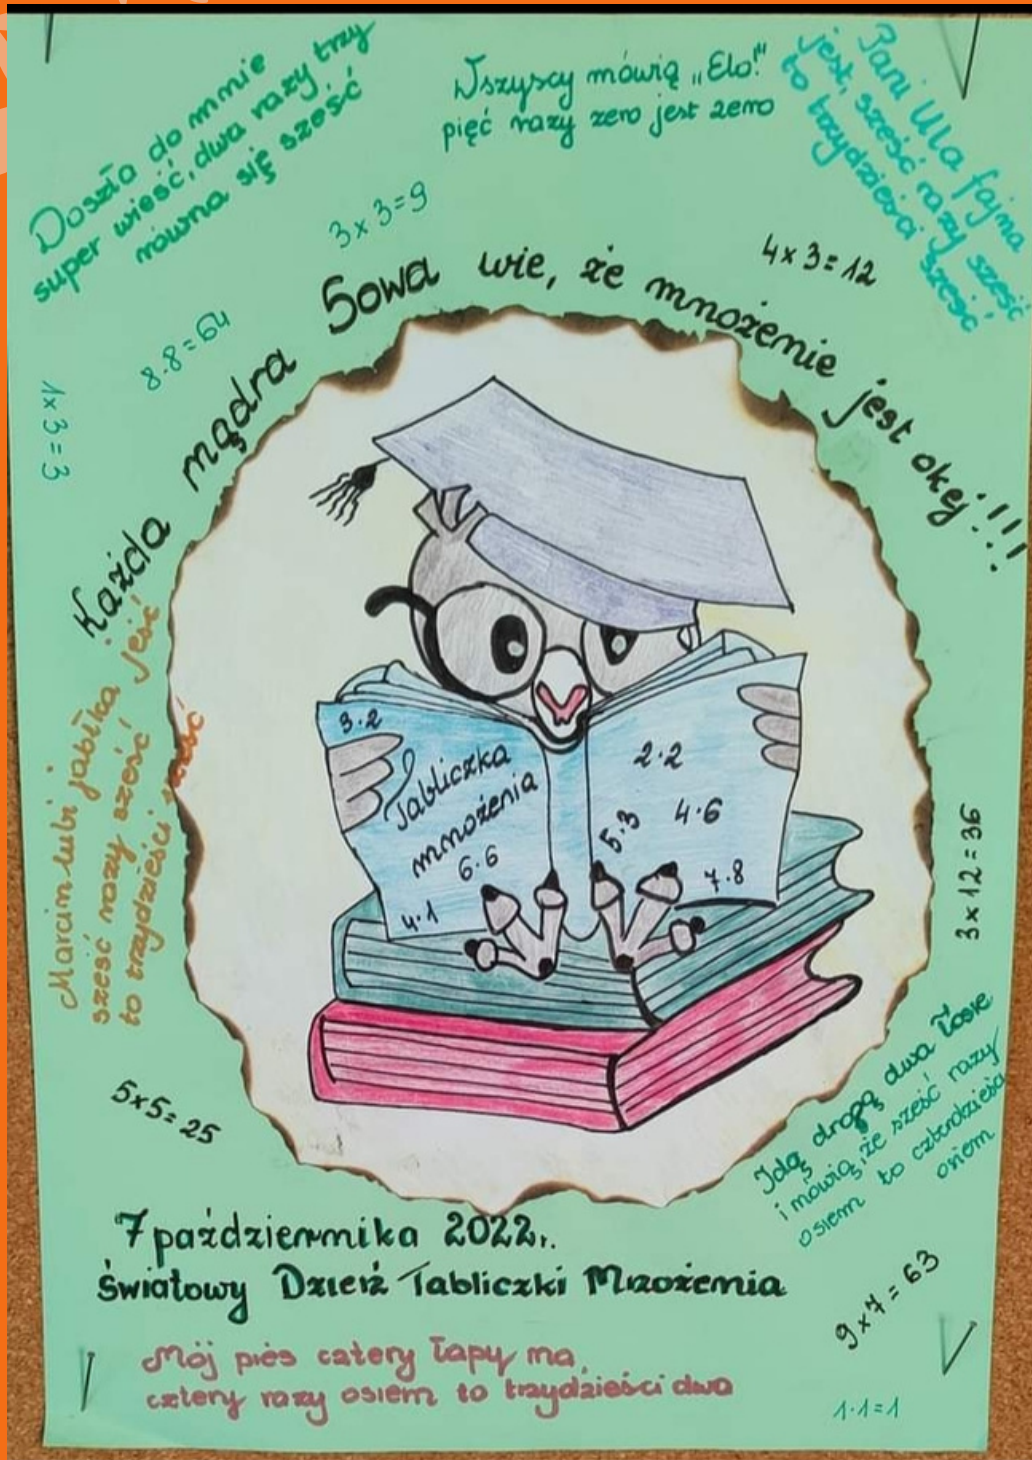 Doszła do mnie
super wieść, dwa razy trzy
równa się sześć
Wszyscy mówią „Elo!"
pięć razy zero jest zero
Pani Ula fajna
jest, sześć razy sześć
to trzydzieści sześć
3 x 3 = 9
4 x 3 = 12
8·8=64
1 x 3 = 3
Każda mądra Sowa wie, że mnożenie jest okej!!!
Marcin lubi jabłka jeść
sześć razy sześć
to trzydzieści sześć
3·2
Tabliczka
mnożenia
6·6
4·1
2·2
4·6
5·3
7·8
3 x 12 = 36
5x5= 25
Idą drogą dwa łosie
i mówią, że sześć razy
osiem to czterdzieści
osiem
7 października 2022r.
Światowy Dzień Tabliczki Mnożenia
9 x 7 = 63
Mój pies cztery łapy ma,
cztery razy osiem to trzydzieści dwa
1·1=1